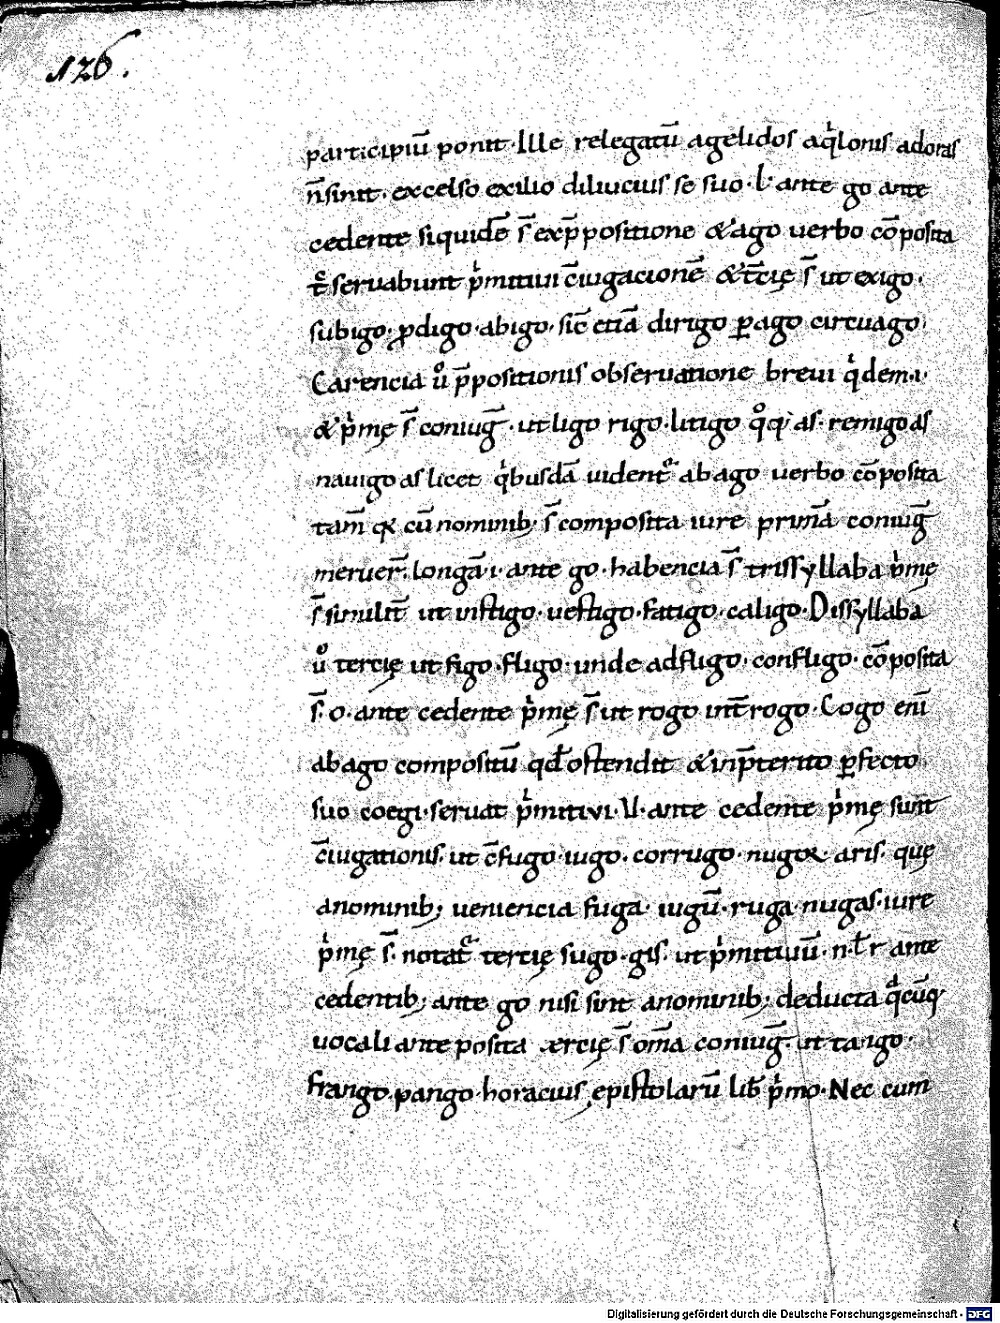 126.
participiū ponit. Ille relegatū agelidos aqͥlonis adoras
n̄sinit. excelso exilio diliucius se suo. I. ante go ante
cedente siquidē s̄ exp̄positione & ago uerbo cōposita
seruabunt pͥmitiui c̄iugacionē & t̄cię s̄ ut exigo.
subigo. ꝓdigo. abigo. sic̄ etiā dirigo ꝑago circuago.
Carencia uͦ p̄positionis obseruatione breui qͥdem .i.
& pͥmę s̄ coniuḡ. ut ligo rigo. litigo as. remigo as
nauigo as licet qͥbusdā uident᷑ ab ago uerbo cōposita
tam̄ cū nominib; s̄ composita iure primā coniuḡ
meruer̄. longā .i. ante go. habencia s̄ trissyllaba pͥmę
s̄ similit̄ ut uistigo. uestigo. fatigo. caligo. Dissyllaba
uͦ tercię ut figo. fligo. unde adfligo. confligo. cōposita
s̄. o. ante cedente pͥmę s̄ ut rogo int̄rogo. Cogo eni̅
ab ago compositū qđ ostendit & inp̄terito ꝑfecto
suo coegi. seruat pͥmitivi. U. ante cedente pͥmę sunt
c̄iugationis. ut c̄fugo. iugo. corrugo. nugor aris. quę
anominib; ueniencia fuga. iugū. ruga. nugas. iure
pͥmę s̄. notat᷑ tercię sugo. gis. ut pͥmitiuū. n. ł r ante
cedentib; ante go nisi sint anominib; deducta
uocali ante posita tercię s̄ om̄a coniuḡ. ut tango.
frango. pango. horacius epistolarū lib̄ pͥmo. Nec cum
Digitalisierung gefördert durch die Deutsche Forschungsgemeinschaft - DFG